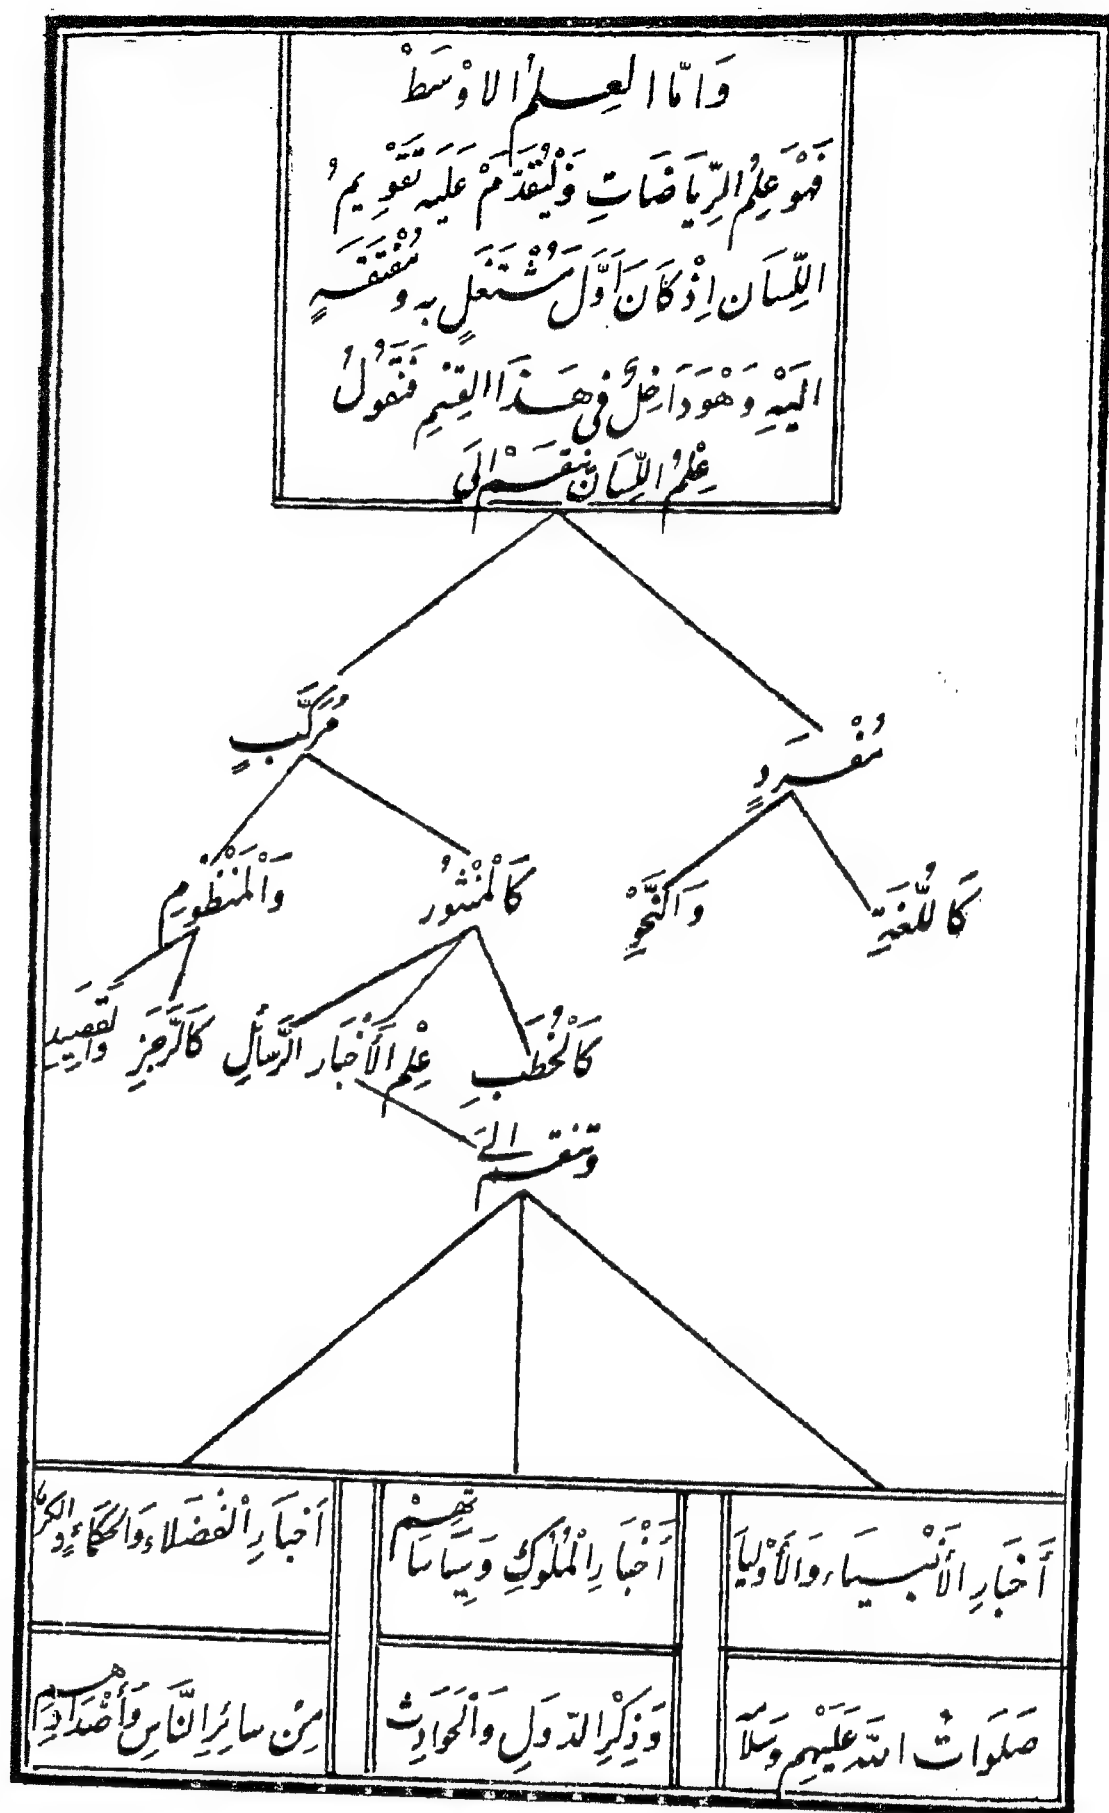 وَامّا العِلمُ الاوْسَطْ
فَهْوَ عِلمُ الرِّيَاضَاتِ وَلْيُقَدَّمْ عَلَيهِ تَقْوِيمُ
اللِّسَان اِذْ كَانَ اَوَّلَ مُشْتَغَلٍ به ومُفْتَقَرٍ
اليْهِ وَهْوَ دَاخِلٌ فى هَذَا القِسْمِ فَنَقُولُ
عِلْمُ اللِّسَان ينقسمْ الَى
مُرَكَّبٍ
مُفْرَدٍ
كَاللُّغَةِ
وَالنَّحْوِ
كَالْمَنْثُورِ
وَالْمَنْظُومِ
كَالْخُطَبِ
عِلْم الأَخْبَار
الرَّسَائِلِ
كَالرَّجَزِ
وَالقَصِيدِ
وتنقسم الىَ
أَخبَارِ الأَنْبِيَاء وَالأَوْليَا
صَلَوَاتُ اللّه عَلَيْهِم وَسَلَا
أَخْبَارِ الْمُلُوكِ وَسِيَاسَاتهِمْ
وَذِكْرِ الدّوَلِ وَالْحَوَادِث
أَخبَارِ الْفُضَلاءِ وَالحُكَمَاءِ و
مِنْ سائِرِ النَّاسِ وَأَضْدَادِهم